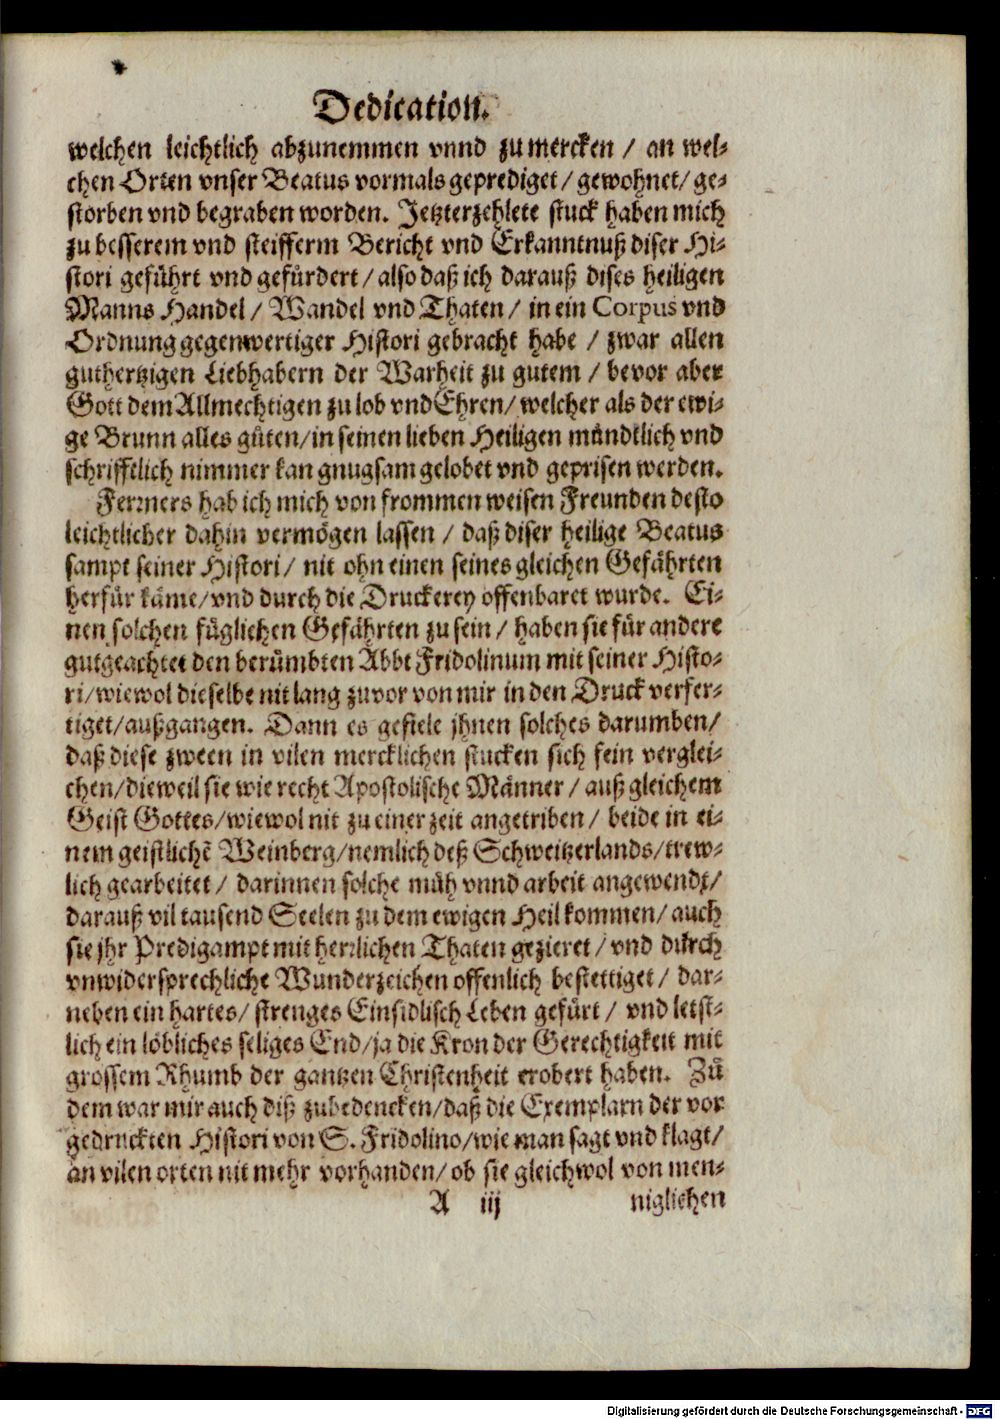 Dedication.
welchen leichtlich abzunemmen vnnd zu mercken / an wel-
chen Orten vnser Beatus vormals geprediget / gewohnet / ge-
storben vnd begraben worden. Jetzterzehlete stuck haben mich
zu besserem vnd steifferm Bericht vnd Erkanntnuß diser Hi-
stori geführt vnd gefürdert / also daß ich darauß dises heiligen
Manns Handel / Wandel vnd Thaten / in ein Corpus vnd
Ordnung gegenwertiger Histori gebracht habe / zwar allen
guthertzigen Liebhabern der Warheit zu gutem / bevor aber
Gott dem Allmechtigen zu lob vnd Ehren / welcher als der ewi-
ge Brunn alles gůten / in seinen lieben Heiligen mündtlich vnd
schrifftlich nimmer kan gnugsam gelobet vnd geprisen werden.
Ferrners hab ich mich von frommen weisen Freunden desto
leichtlicher dahin vermögen lassen / daß diser heilige Beatus
sampt seiner Histori / nit ohn einen seines gleichen Gefährten
herfür käme / vnd durch die Druckerey offenbaret wurde. Ei-
nen solchen füglichen Gefährten zu sein / haben sie für andere
gutgeachtet den berümbten Abbt Fridolinum mit seiner Histo-
ri / wiewol dieselbe nit lang zuvor von mir in den Druck verfer-
tiget / außgangen. Dann es gefiele jhnen solches darumben /
daß diese zween in vilen mercklichen stucken sich fein verglei-
chen / dieweil sie wie recht Apostolische Männer / auß gleichem
Geist Gottes / wiewol nit zu einer zeit angetriben / beide in ei-
nem geistlichẽ Weinberg / nemlich deß Schweitzerlands / trew-
lich gearbeitet / darinnen solche müh vnnd arbeit angewendt /
darauß vil tausend Seelen zu dem ewigen Heil kommen / auch
sie jhr Predigampt mit herrlichen Thaten gezieret / vnd durch
vnwidersprechliche Wunderzeichen offenlich bestettiget / dar-
neben ein hartes / strenges Einsidlisch Leben gefürt / vnd letst-
lich ein löbliches seliges End / ja die Kron der Gerechtigkeit mit
grossem Rhumb der gantzen Christenheit erobert haben. Zů
dem war mir auch diß zubedencken / daß die Exemplarn der vor
gedruckten Histori von S. Fridolino / wie man sagt vnd klagt /
an vilen orten nit mehr vorhanden / ob sie gleichwol von men-
A iij niglichen
Digitalisierung gefördert durch die Deutsche Forschungsgemeinschaft - DFG